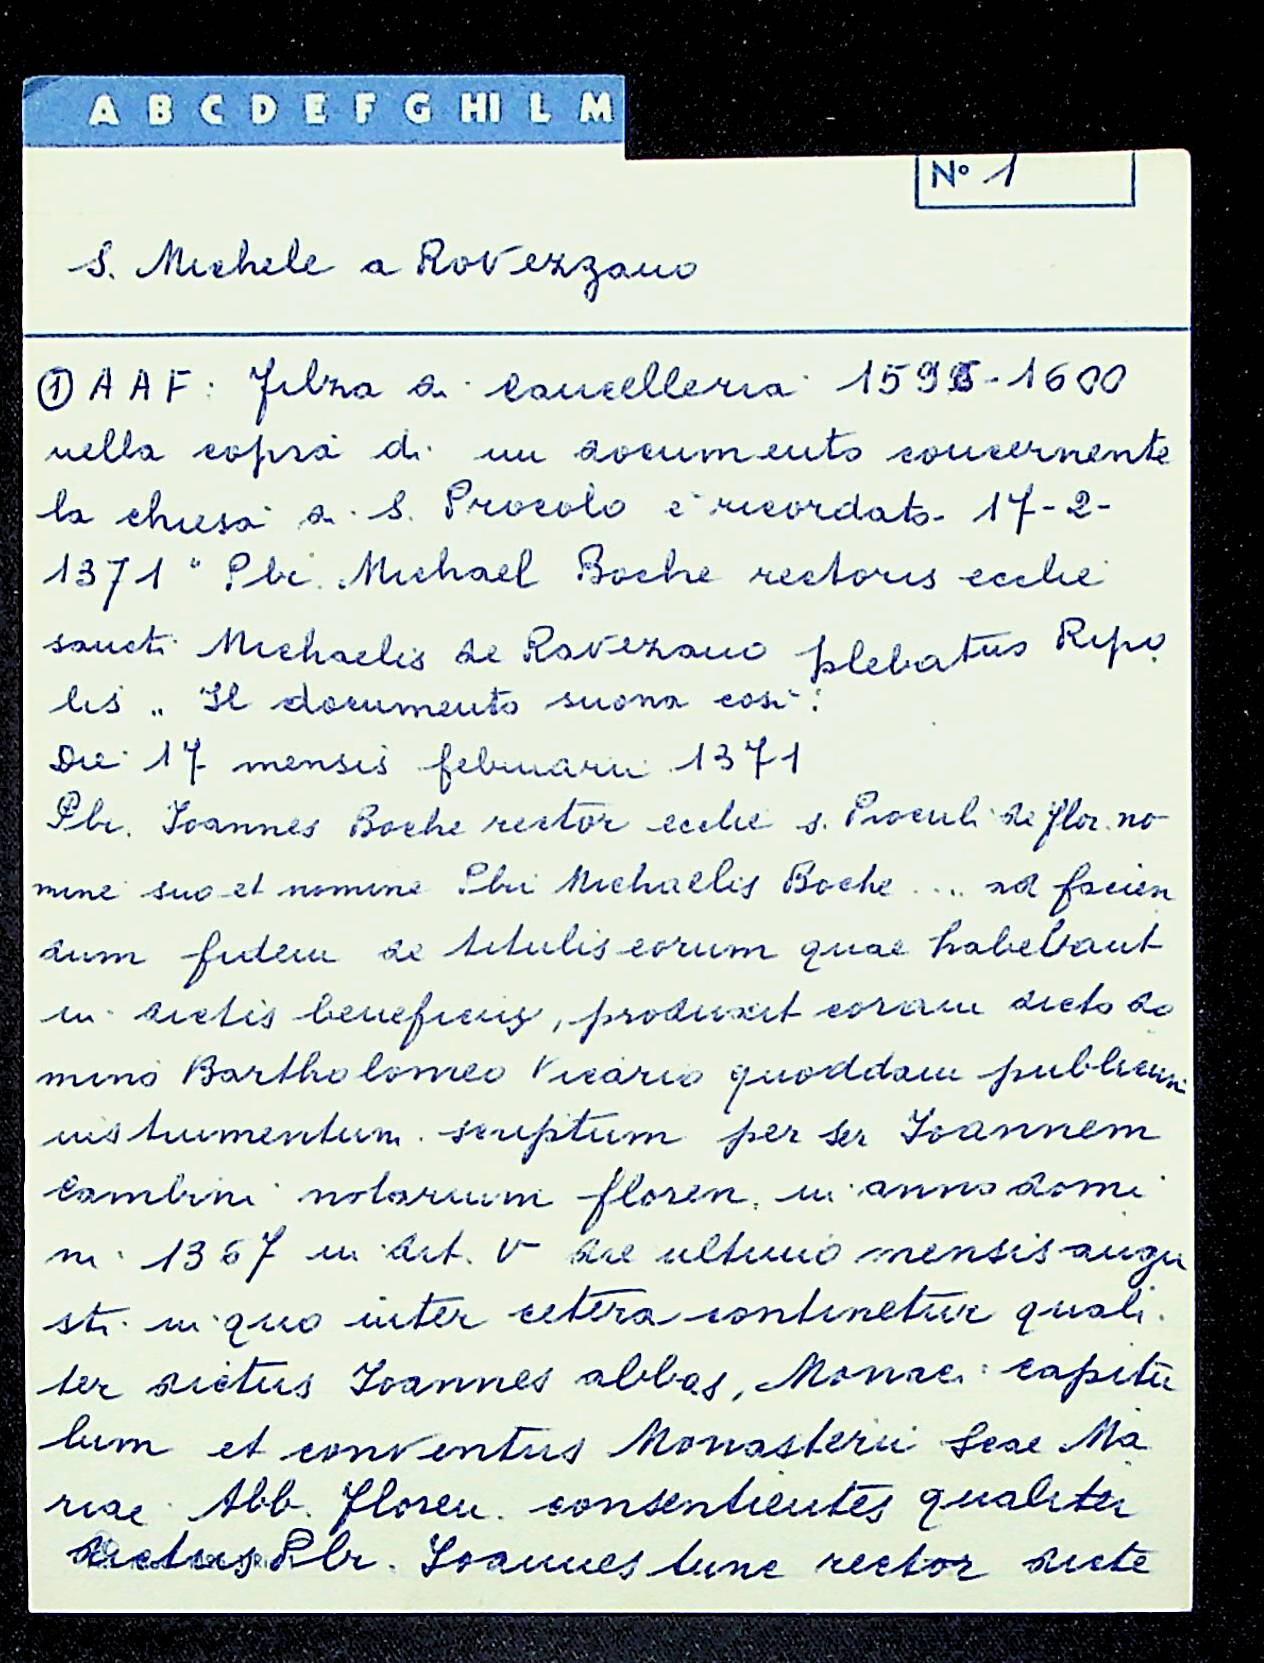 A B C D E F G HI L M
N° 1
S. Michele a Rovezzano
① A A F: Filza di cancelleria 1595-1600
nella copia di un documento concernente
la chiesa di S. Procolo è ricordato 17-2-
1371 " Pbi. Michael Boche rectoris ecclie
sancti Michaelis de Rovezano plebatus Ripo
lis „ Il documento suona così:
Die 17 mensis februarii 1371
Pbr. Ioannes Boche rector ecclie s. Proculi de flor. no-
mine suo et nomine Pbri Michaelis Boche .... ad facien
dum fidem de titulis eorum quae habebant
in dictis beneficiis, produxit coram dicto do
mino Bartholomeo Vicario quoddam publicum
instrumentum scriptum per ser Ioannem
Cambini notarium floren. in anno domi
ni 1367 in dit. V die ultimo mensis augu
sti in quo inter cetera continetur quali
ter dictus Ioannes abbas, Monaci capitu
lum et conventus Monasterii Scae Ma
riae Abb. Floren. consentientes qualiter
dictus Pbr. Ioannes tunc rector dicte